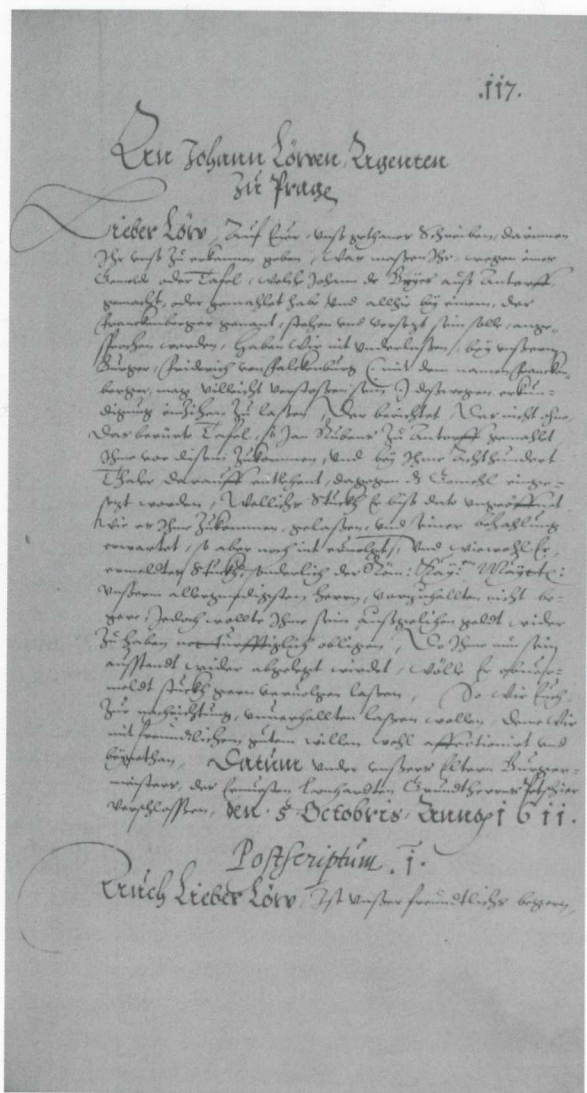 .117.
An Johann Löwen, Agenten
zu Prage
Lieber Löw, Auf Eur, unß gethanes Schreiben, darinnen
Ihr unß zu erkennen geben, was massen Ihr, wegen einer
Gemeld oder Tafel, welche Johann de auß Antorff
gemacht, oder gemahlet habe, und allhie bey einem, der
Franckenberger genant, stehen und versezt sein solle, ange-
sprochen worden, Haben wir nit underlassen, bey unserm
Burger, Friderich von Falckenburg (mit dem namen Francken-
berger, mag villeicht verstossen sein) deßwegen erkun-
digung einziehen zu lassen, Der berichtet, Das nicht ohne,
Das berürte Tafel, so Jan Rubens zu Antorff gemahlt
Ihme vor disem zukommen, und bey Ihme Achthundert
Thaler darauff entlehent, dagegen d Gemehl einge-
sezt worden, Welliches Stuckh Er biß dato uneröffnet
wie es Ihme zukommen, gelassen, und seiner bezahlung
erwartet, so aber noch nit ervolgt, Und wiewohl Er,
ermelltes Stuckh, sonderlich der Röm: Kay: Mayt:
unserm allergnedigsten herrn, vorzuhallten nicht be-
gere, Jedoch wollte Ihme sein außgelihen geldt wider
zu haben notturfftiglich obligen, Do Ihme nun sein
ausstandt wider abgelegt wirdet, wölle Er
meldt stuckh gern vervolgen lassen, So wir Euch
zur nachrichtung, unverhallten lassen wollen, Denen wir
mit freundlichem gutem willen wohl affectionirt und
beygethan, Datum under unsers Eltern Burger-
meisters, des Ernvesten Leonhardten Grundtherrns Petschier
verschlossen, den 5 Octobris Anno 1611.
Postscriptum .1.
Auch Lieber Löw, Ist unser freundtliches begern,